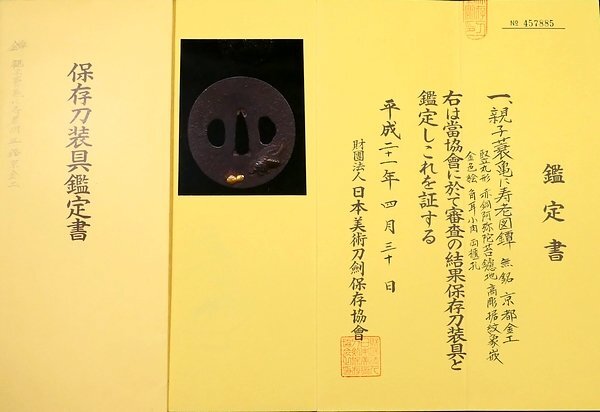 № 457885
鑑定書
一、親子蓑亀に寿老図鐔 無銘 京都金工
竪丸形 赤銅阿弥陀 地 高彫 据紋象嵌
金色絵 角耳小肉 両櫃孔
右は當協會に於て審査の結果保存刀装具と
鑑定しこれを証する
平成二十一年四月三十日
財團法人 日本美術刀剣保存協會
保存刀装具鑑定書